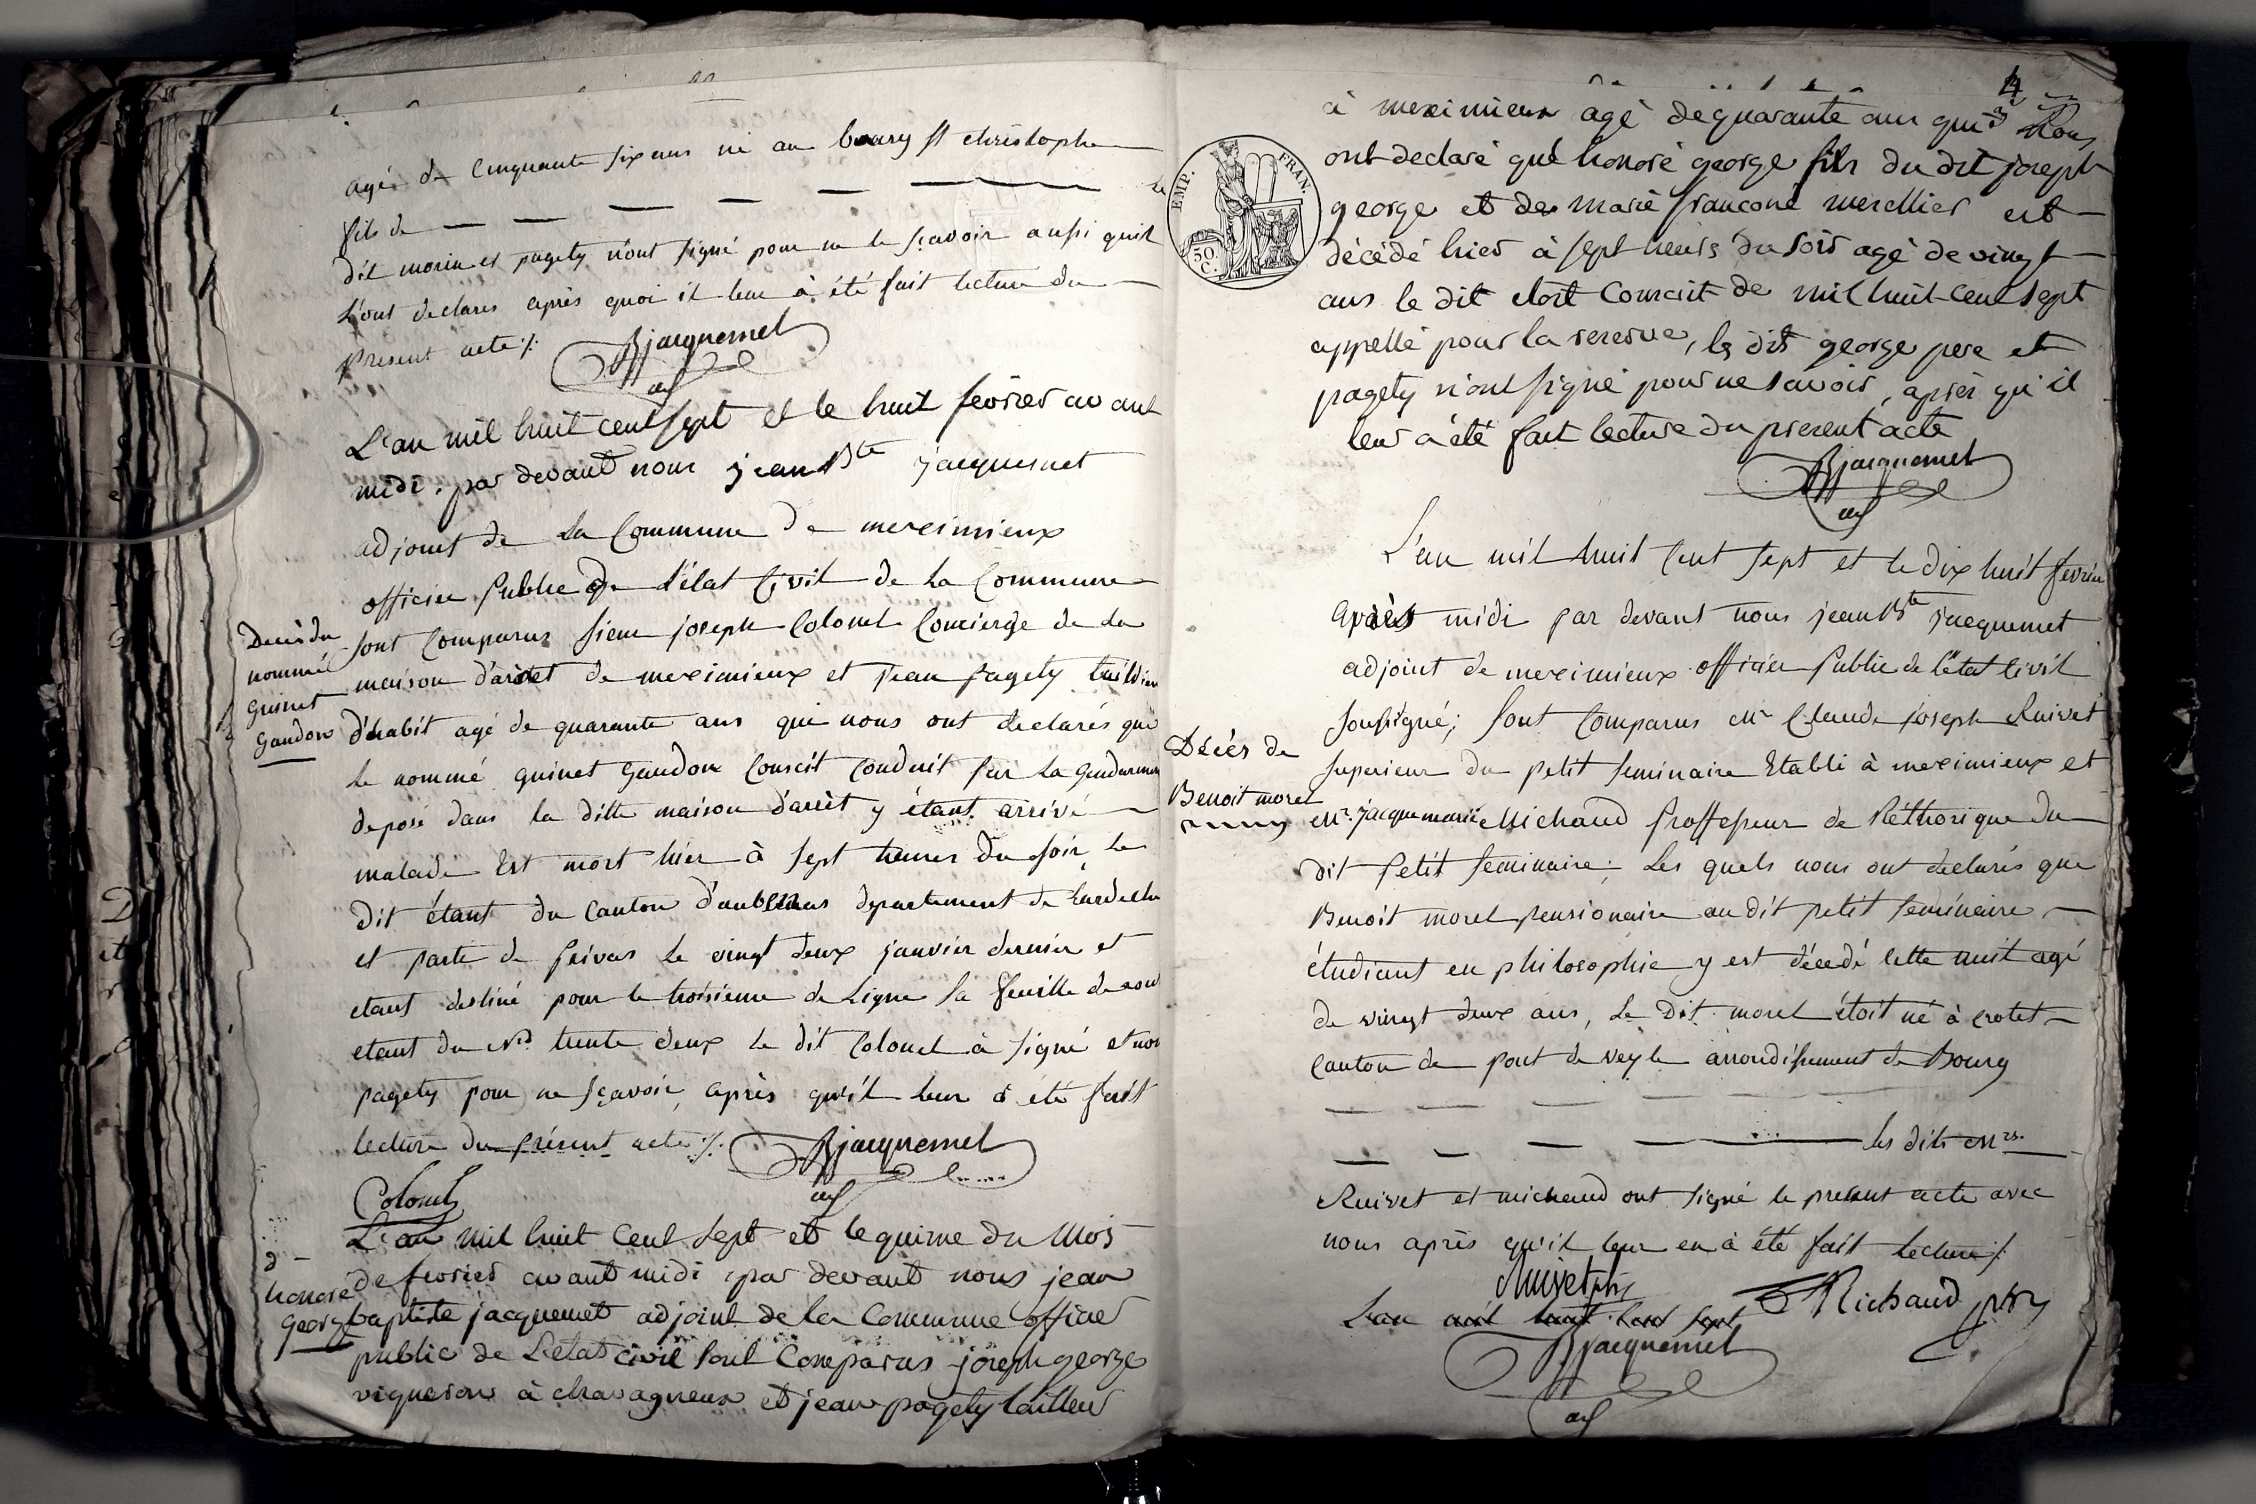 agé de Cinquante six ans né au bourg st christophe
fils de le
dit morin et pagety n'ont signé pour ne le sçavoir ainsi quil
L'ont declarés après quoi il leur à été fait lecture du
Present acte ./.
Bjacquemet
adj
L'an mil huit cent sept et le huit fevrier avant
midi. par devant nous jean Bte jacquemet
adjoint de La Commune de meximieux
officier Public De L'état Civil de La Commune
sont Comparus sieur joseph Colonel Concierge de La
maison d'arret de meximieux et jean pagety tailleur
d'habit agé de quarante ans qui nous ont declarés que
Le nommé guinet Gaudon Conscit Conduit par La Gendarmerie
deposé dans la ditte maison d'arrêt y étant arrivé
malade Est mort hier à sept heures Du soir, Le
Dit étant du Canton d'aubenas departement de Lardeche
et parti de privas Le vingt deux janvier dernier et
etant destiné pour le troisieme de Ligne sa feuille de route
etant du No. trente deux Le dit Colonel à signé et non
pagety pour ne sçavoir, après qu'il leur à été fait
lecture du présent acte ./. Bjacquemet
adj
Colonel
Decès du
nommé
Guinet
Gaudon
L'an mil huit Cent sept et le quinze du Mois
de fevrier avant midi, par devant nous jean
baptiste jacquemet adjoint de la Commune officier
public de L'etat civil sont Comparus joseph george
vigneron à chavagneux et jean pagety tailleur
d
honoré
George
4
à meximieux agé de quarante ans qui Nous
ont declaré que honoré george fils du dit joseph
george et de marie françoise merellier est
décédé hier à sept heurs du soir agé de vingt
ans le dit etoit Conscrit de mil huit-cent sept
appellé pour la reserve, le dit george pere et
pagety n'ont signé pour ne savoir, après qu'il
leur a été fait lecture du present acte
Bjacquemet
adj
EMP. FRAN.
50.
C.
L'an mil huit Cent sept et le dix huit fevrier
après midi par devant nous jean Bte jacquemet
adjoint de meximieux officier Public de L'état Civil
soussigné; sont Comparus Mr Claude joseph Ruivet
superieur du petit seminaire Etabli à meximieux et
Mr. jacque marie Michaud Proffesseur de Réthorique du
dit Petit seminaire; Les quels nous ont declarés que
Benoit morel pensionaire au dit petit seminaire
étudiant en philosophie y est décedé Cette nuit agé
de vingt deux ans, Le Dit morel étoit né à crotet
Canton de pont de veyle arrondissement de Bourg
les dits Mrs.
Ruivet et michaud ont signé le present acte avec
nous après qu'il leur en à été fait Lecture ./.
Décès de
Benoit morel
Ruivet ptre
Michaud ptre
L'an mil huit Cent sept
Bjacquemet
adj